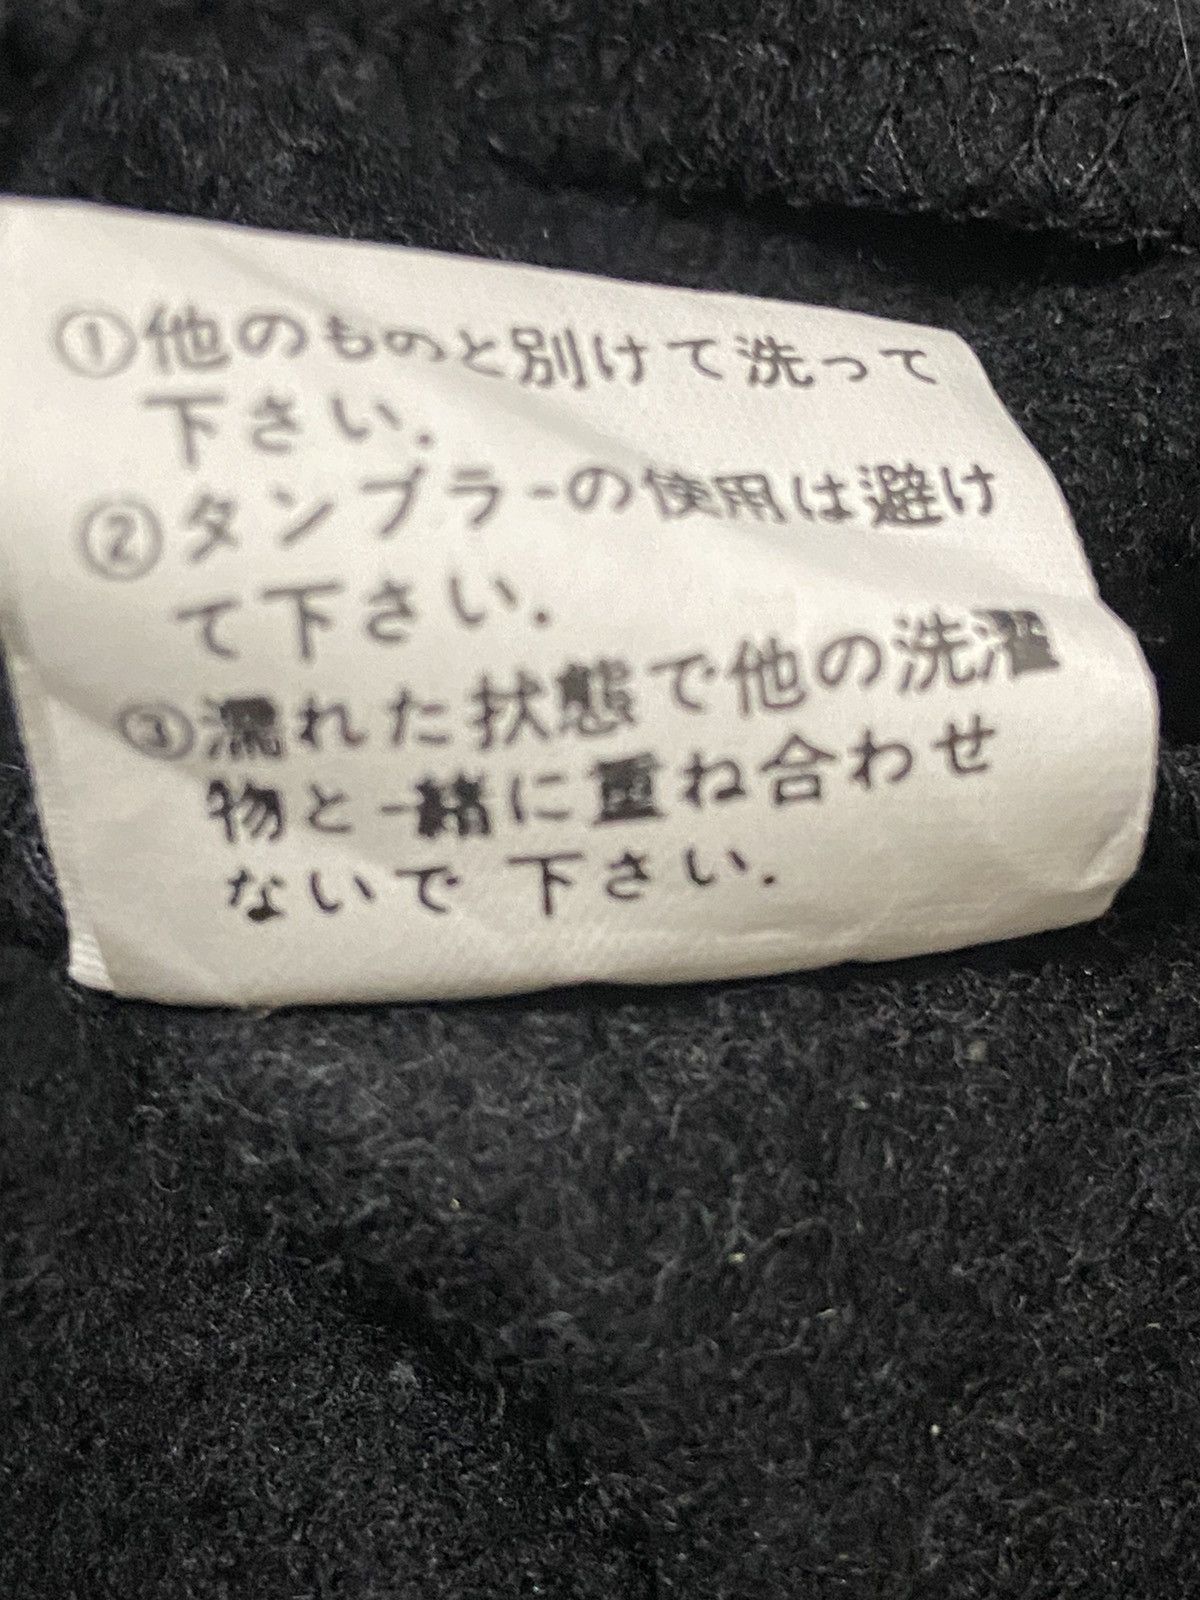 ①他のものと別けて洗って
下さい.
②タンブラーの使用は避け
て下さい.
③濡れた状態で他の洗濯
物と一緒に重ね合わせ
ないで下さい.